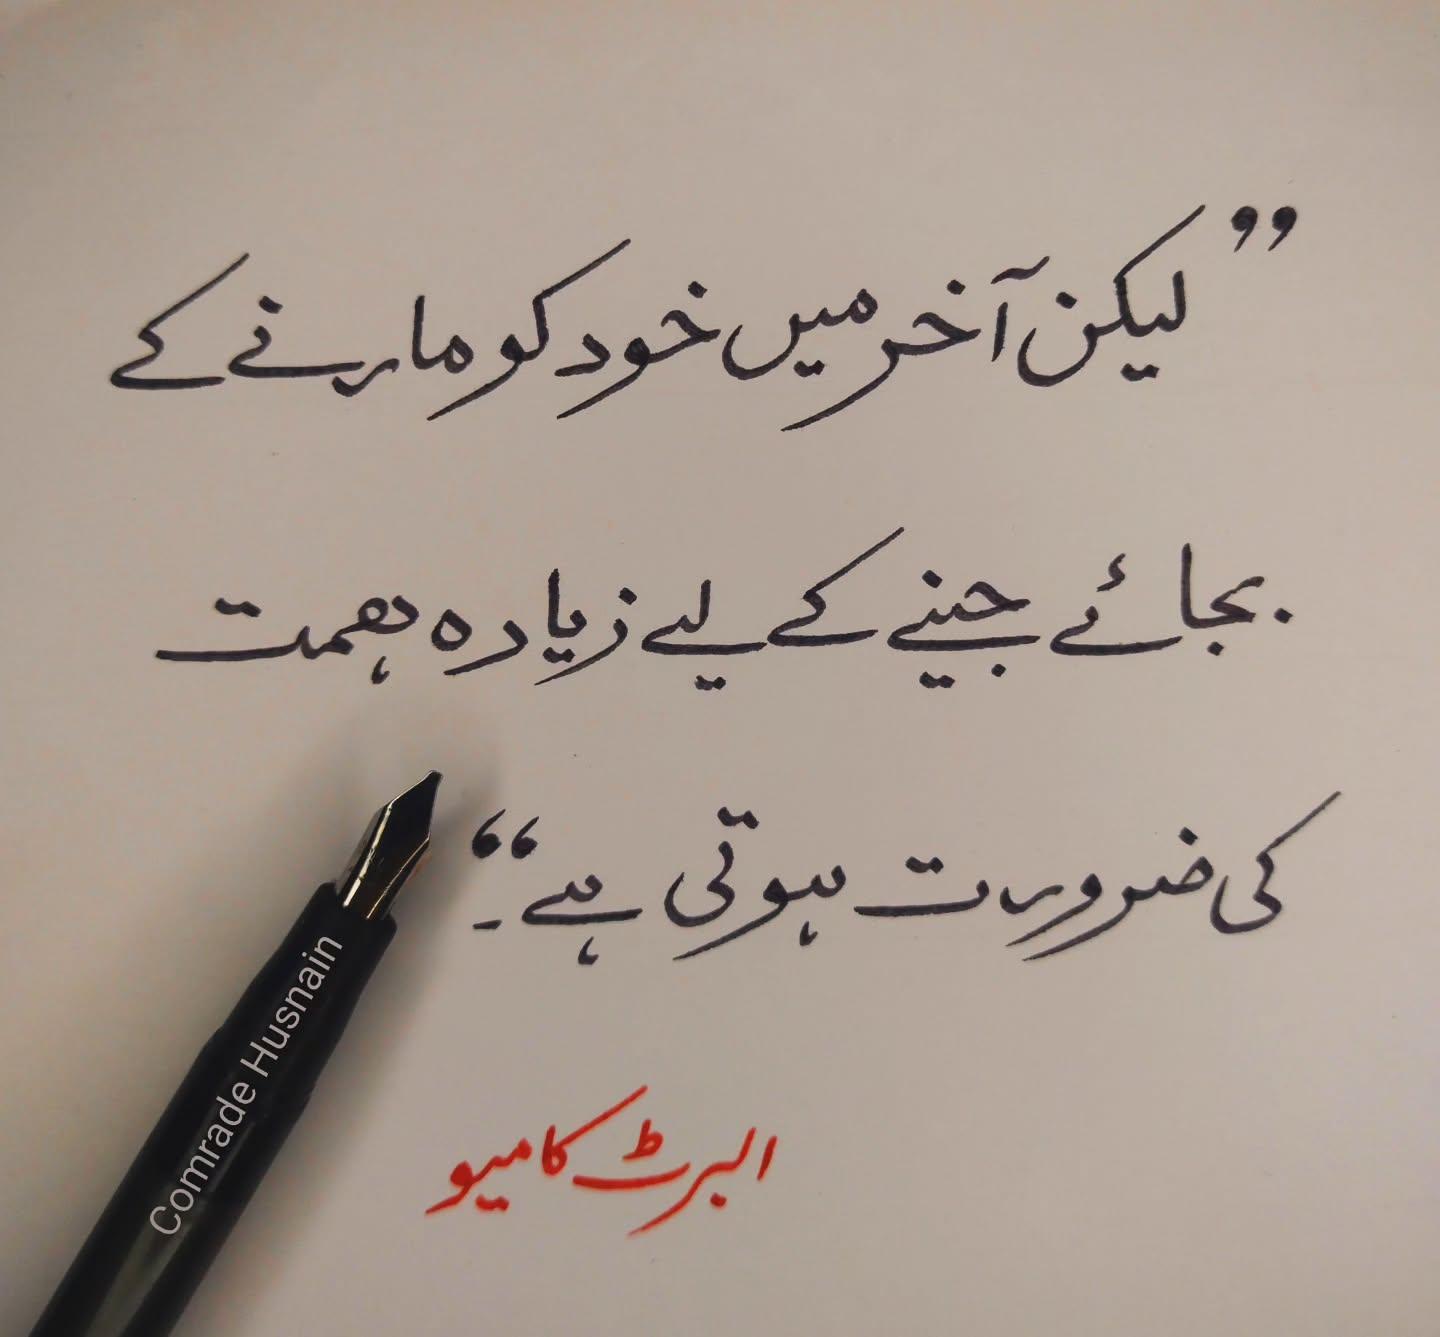 ”لیکن آخر میں خود کو مارنے کے
بجائے جینے کے لیے زیادہ ہمت
کی ضرورت ہوتی ہے۔“
البرٹ کامیو
Comrade Husnain